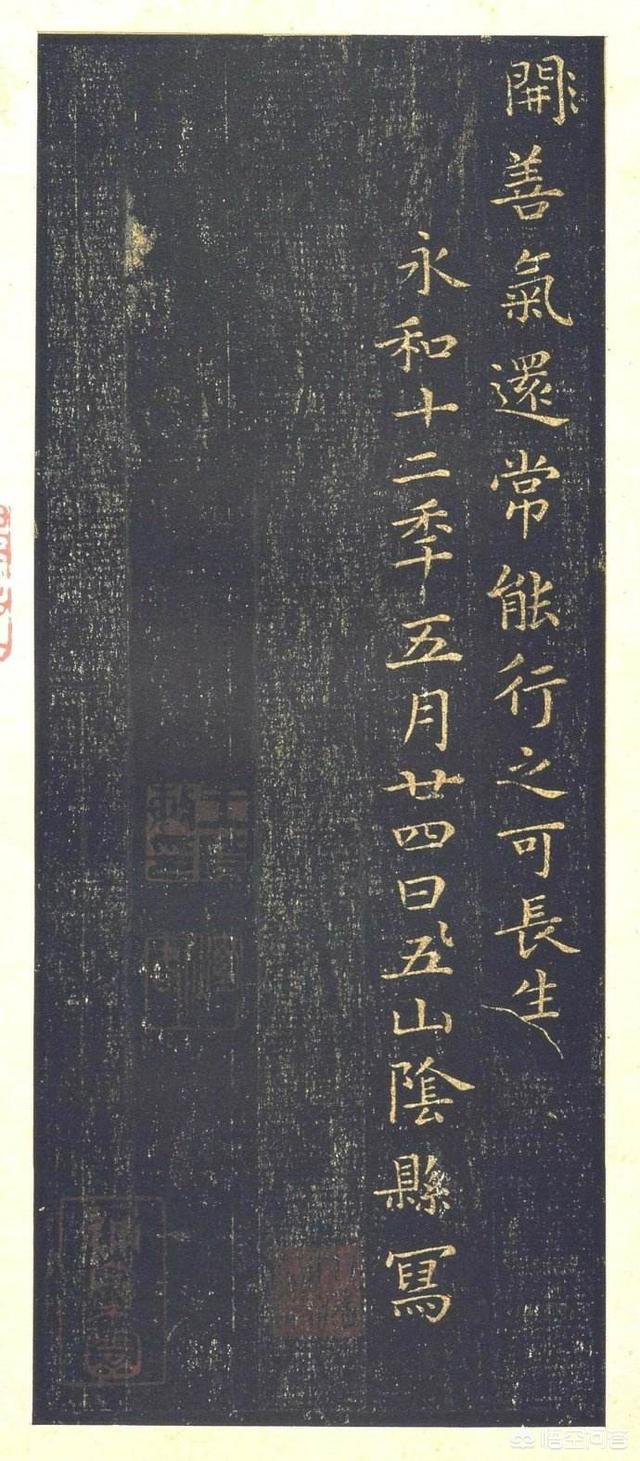 開善氣還常能行之可長生
永和十二秊五月廿四日五山陰縣寫
悟空问答